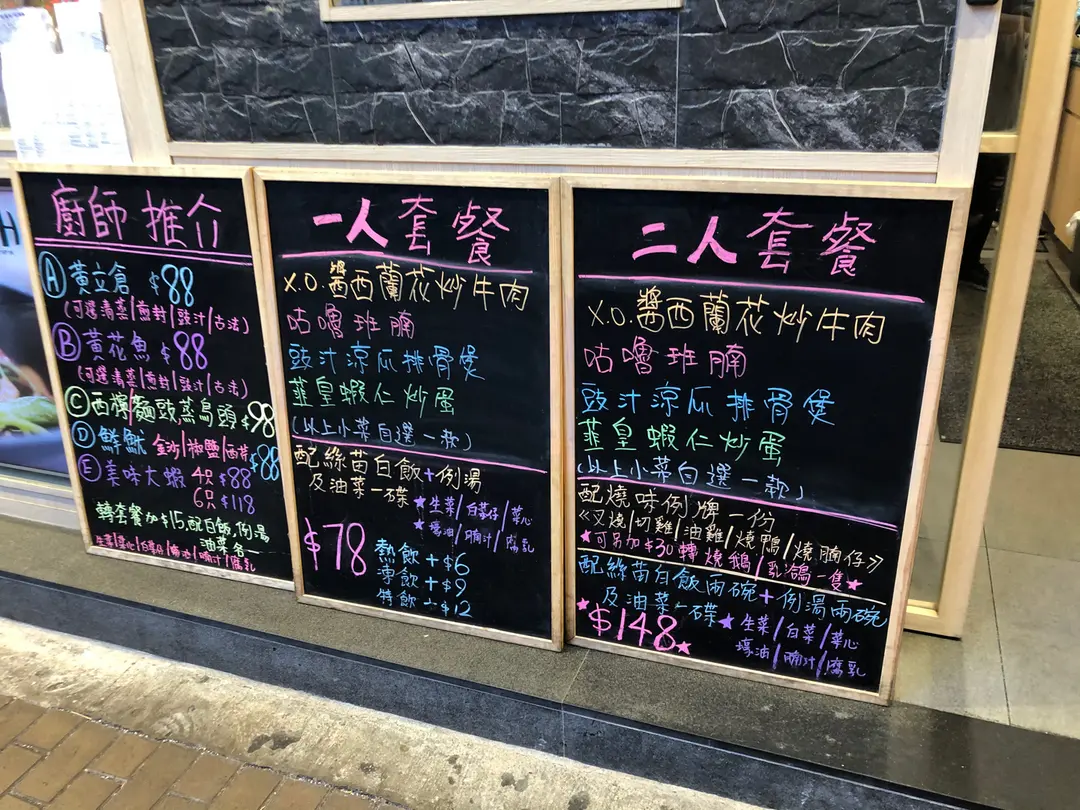 廚師推介
Ⓐ 黃立倉 $88
(可選清蒸/煎封/豉汁/古法)
Ⓑ 黃花魚 $88
(可選清蒸/煎封/豉汁/古法)
Ⓒ 西檸/麵豉蒸烏頭 $98
Ⓓ 鮮魷 金沙/椒鹽/西芹 $88
Ⓔ 美味大蝦 4只 $88
6只 $118
轉套餐加$15,配白飯,例湯
油菜各一
生菜/菜心/白菜仔/蠔油/腩汁/腐乳
一人套餐
X.O.醬西蘭花炒牛肉
咕嚕班腩
豉汁涼瓜排骨煲
韮皇蝦仁炒蛋
(以上小菜自選一款)
配絲苗白飯+例湯
及油菜一碟
★生菜/白菜仔/菜心
★蠔油/腩汁/腐乳
$78
熱飲+$6
凍飲+$9
特飲+$12
二人套餐
X.O.醬西蘭花炒牛肉
咕嚕班腩
豉汁涼瓜排骨煲
韮皇蝦仁炒蛋
(以上小菜自選一款)
配燒味例牌一份
《叉燒/切雞/油雞/燒鴨/燒腩仔》
★可另加$30轉燒鵝/乳鴿一隻★
配絲苗白飯兩碗+例湯兩碗
及油菜一碟
★生菜/白菜/菜心
蠔油/腩汁/腐乳
★$148★
H